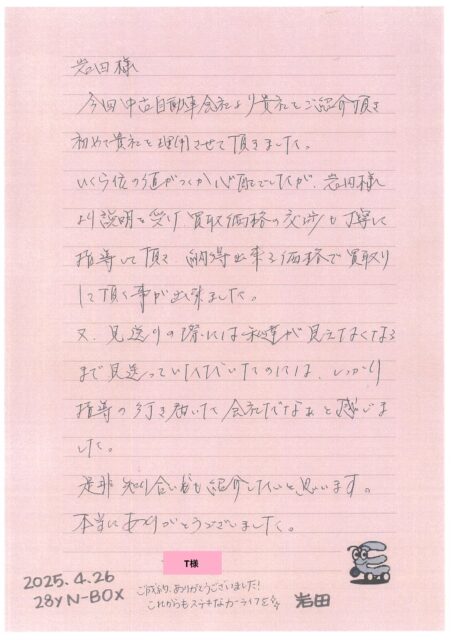 岩田様
今回中古自動車会社より貴社をご紹介頂き
初めて貴社を理用させて頂きました。
いくら位の値がつくか心配でしたが、岩田様
より説明を受け買取価格の交渉も丁寧に
指導して頂き、納得出来る価格で買取り
して頂く事が出来ました。
又、見送りの際には私達が見えなくなる
まで見送っていただいたのには、しっかり
指導の行き届いた会社だなぁと感じま
した。
是非知り合いにも紹介したいと思います。
本当にありがとうございました。
T様
2025.4.26
28y N-BOX
ご成約、ありがとうございました!
これからもステキなカーライフを
岩田